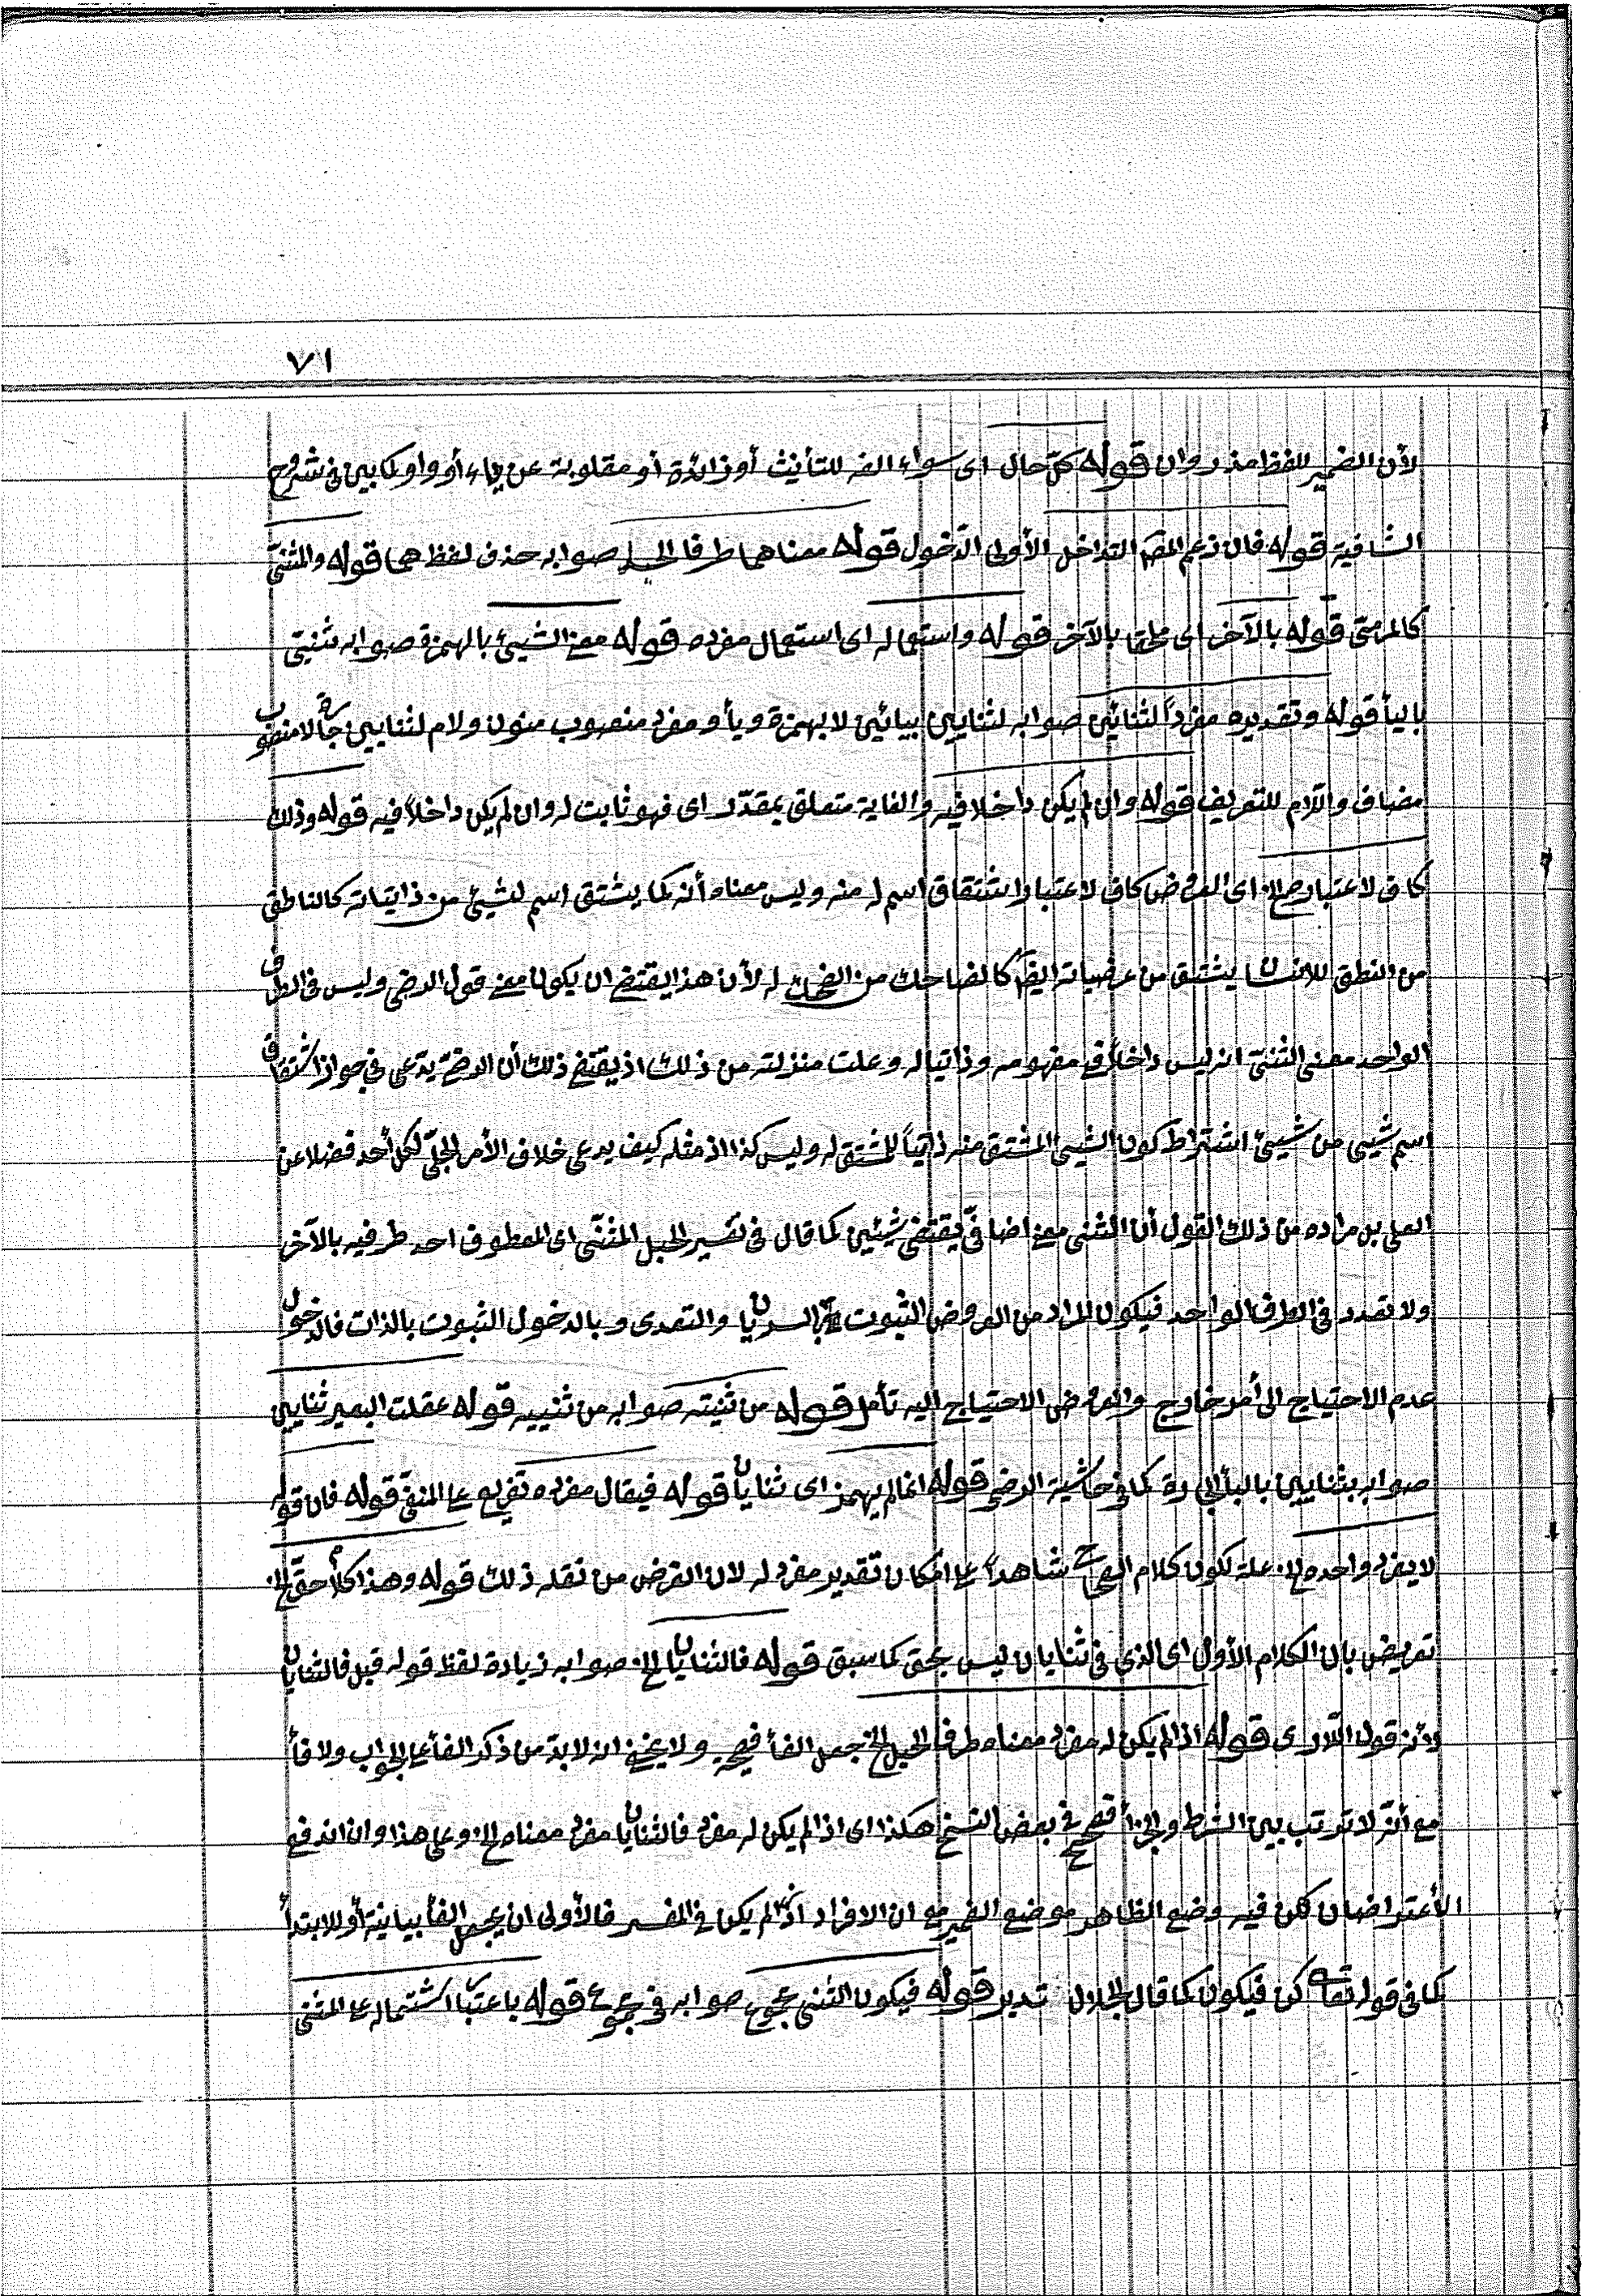 ٧١
لأن الضمير للفظ مذروان قوله كل حال اى سواء الفه للتأنيث أو زائدة أو مقلوبة عن ياء أو واو كما بين فى شروح
الشافية قوله فان زعم المصـ التداخل الأولى الدّخول قوله معناهما طرفا الحبل صوابه حذف لفظ هما قوله والمثنىّ
كالمرمىّ قوله بالآخر اى ملحقا بالآخر قوله واستعماله اى استعمال مفرده قوله معنى الشيئ بالهمزة صوابه ثنيتى
باليأ قوله وتقديره مفرداً لثنائين صوابه لثنايين بيائين لا بهمزة ويأ و مفرد منصوب منون ولام لثنايين جارة لا منصوب
مضاف والّلام للتعريف قوله وان لم يكن داخلا فيه والغاية متعلق بمقدّر اى فهو ثابت له وان لم يكن داخلاً فيه قوله وذلك
كاف لاعتبار الخ اى العروض كاف لاعتبار اشتقاق اسم له منه وليس معناه أنه كما يشتق اسم لشيئ من ذاتياته كالناطق
من النطق للانسان يشتق من عرضياته ايضاً كالضاحك من الضحك له لأن هذا يقتضى ان يكون معنى قول الرضى وليس فى الطرف
الواحد معنى الثنى انه ليس داخلاً فى مفهومه وذاتيا له وعلت منزلته من ذلك اذ يقتضى ذلك أن الرضى يدعى فى جواز اشتقاق
اسم شيئ من شيئ اشتراط كون الشيئ المشتق منه ذاتياً للمشتق له وليس كذا اذ مثله كيف يدعى خلاف الأمر الجلىّ لكل أحد فضلا عن
العلى بل مراده من ذلك القول أن الثنى معنى اضافىّ يقتضى شيئين كما قال فى تفسير الحبل المثنّى اى المعطوف احد طرفيه بالآخر
ولا تعدد فى الطرف الواحد فيكون المراد من العروض الثبوت بالسريان والتعدى و بالدخول الثبوت بالذات فالدخول
عدم الاحتياج الى أمر خارج والعروض الاحتياج اليه تأمل قوله من ثنيته صوابه من ثنييه قوله عقلت البعير ثنايين
صوابه بثنايين بالبأ الجارة كما فى حاشية الرضى قوله انما لم يهمز اى ثنايان قوله فيقال مفرده تفريع على المنفىّ قوله فان قوله
لا يفرد واحده الخ علة لكون كلام الصحاح شاهداً على امكان تقدير مفرد له لان الغرض من نقله ذلك قوله وهذا كلام حقّ الخ
تعريض بان الكلام الأول اى الذى فى ثنايان ليس بحق كما سبق قوله فالثنايان الخ صوابه زيادة لفظ قوله قبل فالثنايان
لأنه قول اللارى قوله اذا لم يكن له مفرد معناه طرف الحبل الخ جعل الفأ ولا يخفى انه لا بدّ من ذكر الفأ على الجواب ولا فأ
مع أنّه لا ترتب بين الشرط والجزأ فى بعض النسخ هكذا اى اذا لم يكن له مفرد فالثنايان مفرد معناه الخ وعلى هذا وان اندفع
الأعتراضان لكن فيه وضع الظاهر موضع الضمير مع ان الافراد اذا لم يكن فى المفسر فالأولى ان يجعل الفأ بيانية أو للابتدأ
كما فى قوله تعالى كن فيكون كما قال الجلال تدبر قوله فيكون الثنى مجموع صوابه فى مجموع قوله باعتبار اشتماله على المثنى